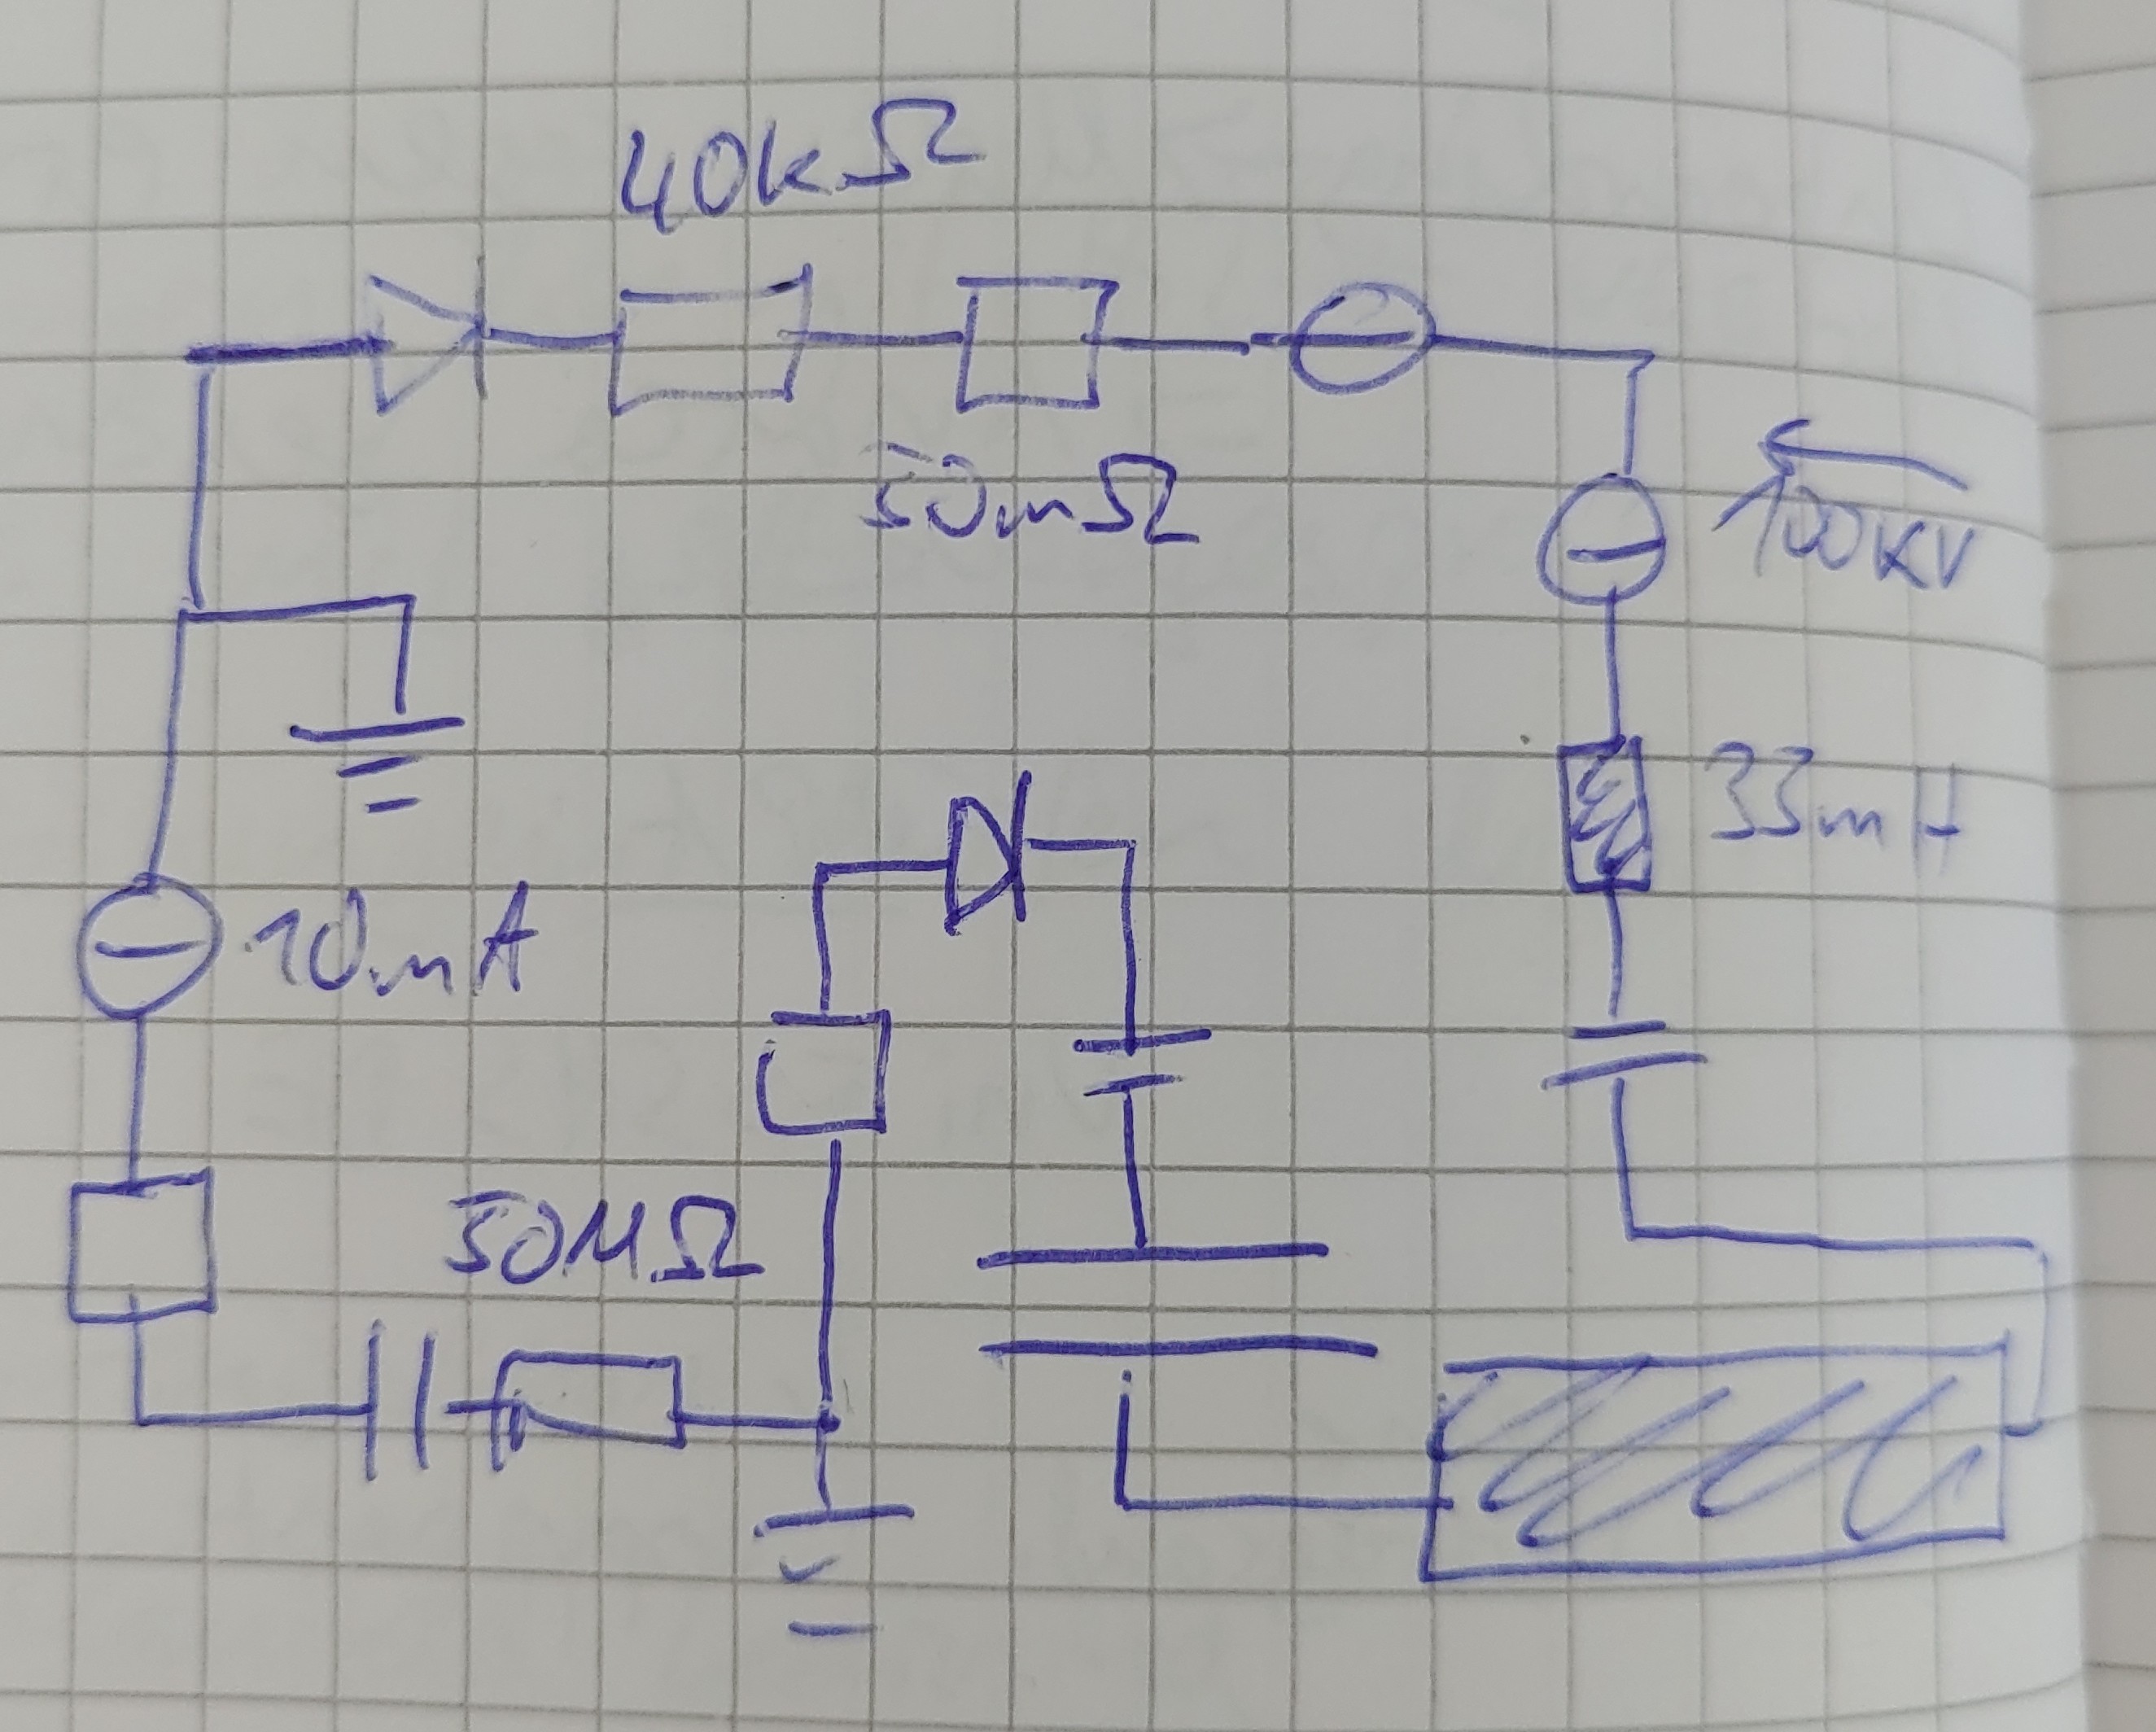 40kΩ
50mΩ
100kV
33mH
10mA
50MΩ